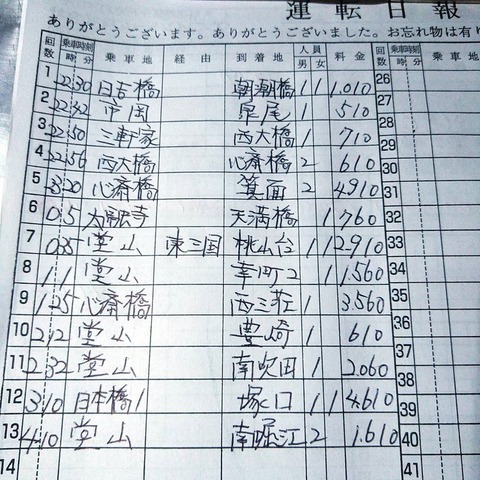 運転日報
ありがとうございます。ありがとうございました。お忘れ物は有り
回数 乗車時刻 時 分 乗車地 経由 到着地 人員 男 女 料金
1 22 30 日吉橋 朝潮橋 1 1 1.010 26
2 22 42 市岡 泉尾 1 510 27
3 22 50 三軒家 西大橋 1 710 28
4 22 56 西大橋 心斎橋 2 610 29
30
5 23 20 心斎橋 箕面 2 4.910 31
6 0 5 太融寺 天満橋 1 760 32
7 0 35 堂山 東三国 桃山台 1 1 2.910 33
8 1 1 堂山 幸町2 1 1.560 34
9 1 25 心斎橋 西三荘 1 3.560 35
36
10 2 12 堂山 豊崎 1 610 37
11 2 32 堂山 南吹田 1 2.060 38
12 3 10 日本橋1 塚口 1 1 4.610 39
13 4 10 堂山 南堀江 2 1.610 40
14 41